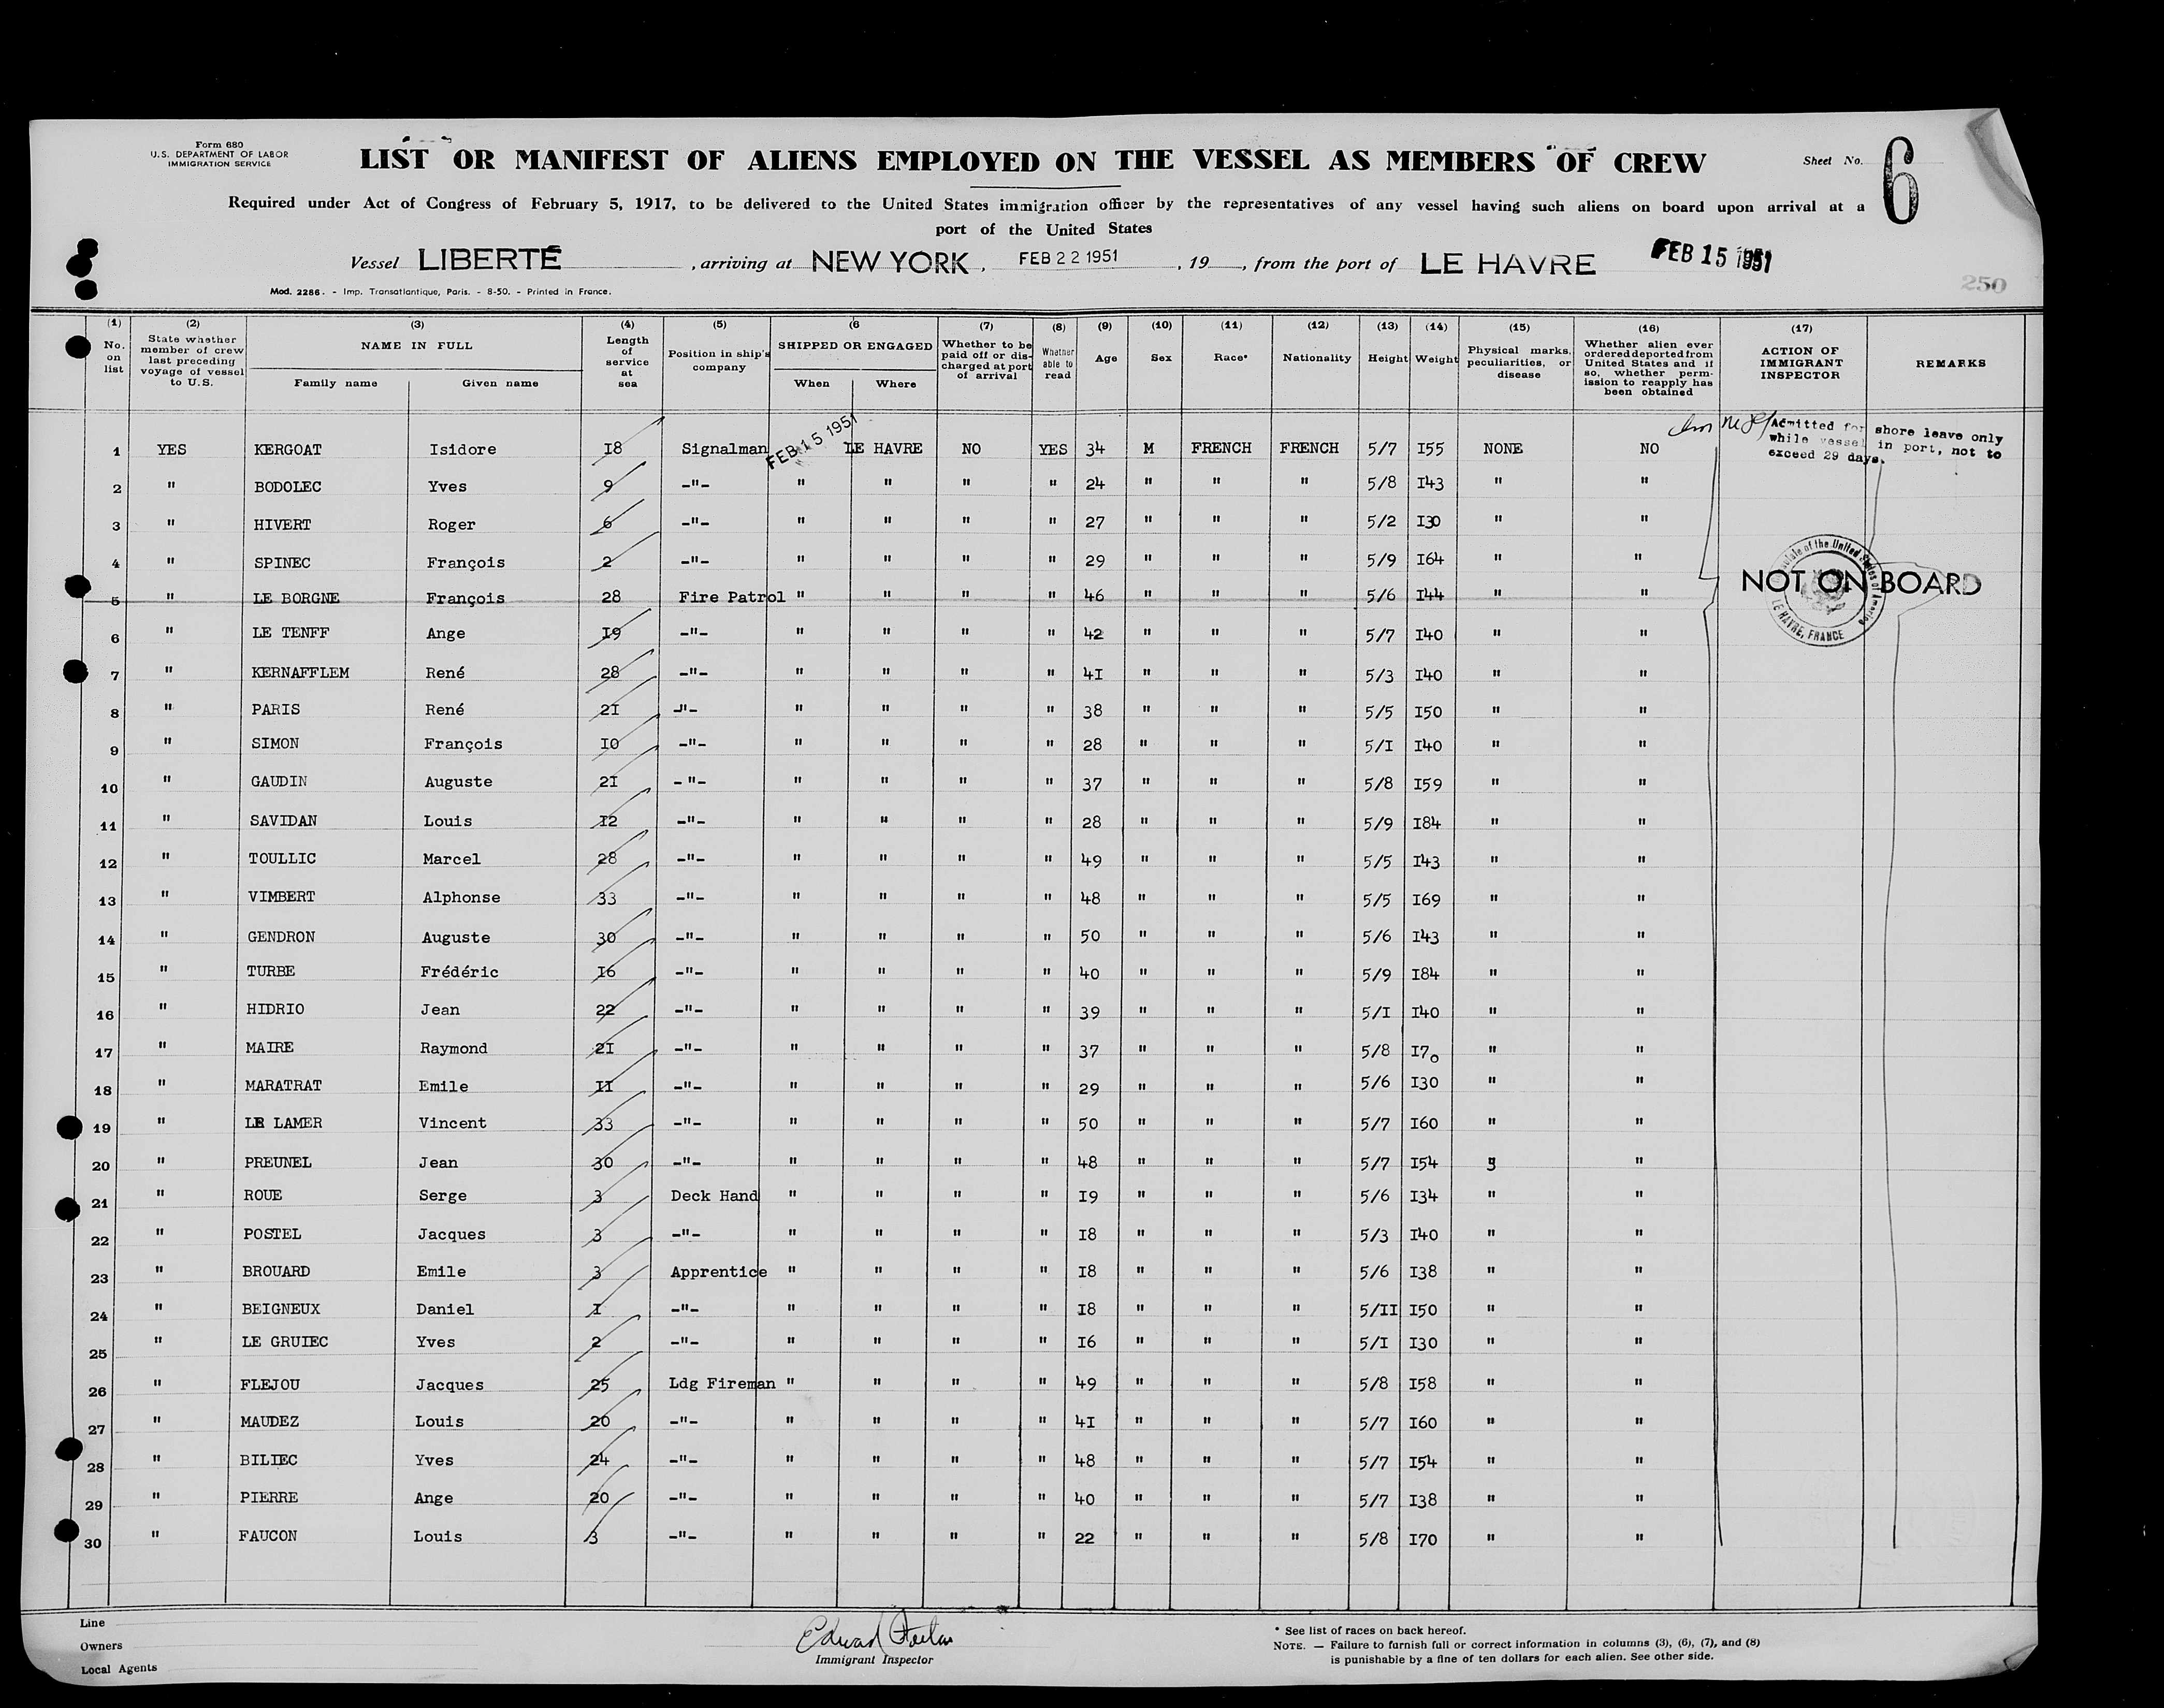 Form 680
U.S. DEPARTMENT OF LABOR
IMMIGRATION SERVICE
LIST OR MANIFEST OF ALIENS EMPLOYED ON THE VESSEL AS MEMBERS OF CREW
Sheet No. 6
Required under Act of Congress of February 5, 1917, to be delivered to the United States immigration officer by the representatives of any vessel having such aliens on board upon arrival at a
port of the United States
Vessel LIBERTÉ, arriving at NEW YORK, FEB 22 1951, 19, from the port of LE HAVRE FEB 15 1951
Mod. 2286. - Imp. Transatlantique, Paris. - 8-50. - Printed in France.
250
(1) (2) (3) (4) (5) (6 (7) (8) (9) (10) (11) (12) (13) (14) (15) (16) (17)
No. on list
State whether member of crew last preceding voyage of vessel to U.S.
NAME IN FULL
Family name Given name
Length of service at sea
Position in ship's company
SHIPPED OR ENGAGED
When Where
Whether to be paid off or discharged at port of arrival
Whether able to read
Age
Sex
Race*
Nationality
Height
Weight
Physical marks, peculiarities, or disease
Whether alien ever ordered deported from United States and if so, whether permission to reapply has been obtained
ACTION OF IMMIGRANT INSPECTOR
REMARKS
Admitted for shore leave only
while vessel in port, not to
exceed 29 days.
1 YES KERGOAT Isidore 18 Signalman FEB 15 1951 LE HAVRE NO YES 34 M FRENCH FRENCH 5/7 I55 NONE NO
2 " BODOLEC Yves 9 -"- " " " " 24 " " " 5/8 I43 " "
3 " HIVERT Roger 6 -"- " " " " 27 " " " 5/2 I30 " "
4 " SPINEC François 2 -"- " " " " 29 " " " 5/9 I64 " "
5 " LE BORGNE François 28 Fire Patrol " " " " 46 " " " 5/6 I44 " " NOT ON BOARD
6 " LE TENFF Ange I9 -"- " " " " 42 " " " 5/7 I40 " "
7 " KERNAFFLEM René 28 -"- " " " " 4I " " " 5/3 I40 " "
8 " PARIS René 2I -"- " " " " 38 " " " 5/5 I50 " "
9 " SIMON François I0 -"- " " " " 28 " " " 5/I I40 " "
10 " GAUDIN Auguste 2I -"- " " " " 37 " " " 5/8 I59 " "
11 " SAVIDAN Louis I2 -"- " " " " 28 " " " 5/9 I84 " "
12 " TOULLIC Marcel 28 -"- " " " " 49 " " " 5/5 I43 " "
13 " VIMBERT Alphonse 33 -"- " " " " 48 " " " 5/5 I69 " "
14 " GENDRON Auguste 30 -"- " " " " 50 " " " 5/6 I43 " "
15 " TURBE Frédéric I6 -"- " " " " 40 " " " 5/9 I84 " "
16 " HIDRIO Jean 22 -"- " " " " 39 " " " 5/I I40 " "
17 " MAIRE Raymond 2I -"- " " " " 37 " " " 5/8 I70 " "
18 " MARATRAT Emile II -"- " " " " 29 " " " 5/6 I30 " "
19 " LE LAMER Vincent 33 -"- " " " " 50 " " " 5/7 I60 " "
20 " PREUNEL Jean 30 -"- " " " " 48 " " " 5/7 I54 " "
21 " ROUE Serge 3 Deck Hand " " " " I9 " " " 5/6 I34 " "
22 " POSTEL Jacques 3 -"- " " " " I8 " " " 5/3 I40 " "
23 " BROUARD Emile 3 Apprentice " " " " I8 " " " 5/6 I38 " "
24 " BEIGNEUX Daniel I -"- " " " " I8 " " " 5/II I50 " "
25 " LE GRUIEC Yves 2 -"- " " " " I6 " " " 5/I I30 " "
26 " FLEJOU Jacques 25 Ldg Fireman " " " " 49 " " " 5/8 I58 " "
27 " MAUDEZ Louis 20 -"- " " " " 4I " " " 5/7 I60 " "
28 " BILIEC Yves 24 -"- " " " " 48 " " " 5/7 I54 " "
29 " PIERRE Ange 20 -"- " " " " 40 " " " 5/7 I38 " "
30 " FAUCON Louis 3 -"- " " " " 22 " " " 5/8 I70 " "
of the United States of America
LE HAVRE, FRANCE
Line
Owners
Local Agents
Edward
Immigrant Inspector
* See list of races on back hereof.
NOTE. — Failure to furnish full or correct information in columns (3), (6), (7), and (8)
is punishable by a fine of ten dollars for each alien. See other side.